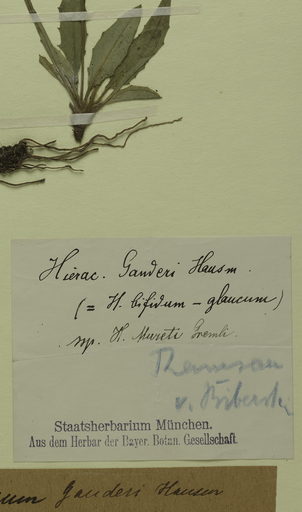 Hierac. Ganderi Hausm.
(= H. bifidum – glaucum)
ssp. H. Mureti Gremli.
Ramsau
v.
Staatsherbarium München.
Aus dem Herbar der Bayer. Botan. Gesellschaft.
Ganderi Hausm